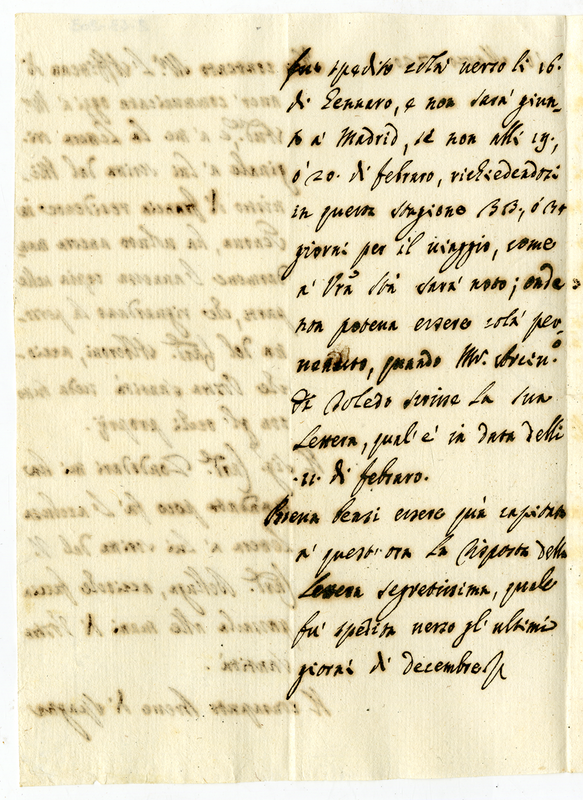 fu spedito colà verso li 16.
di Gennaro, e non sarà giun-
to à Madrid, se non alli 19.,
ò 20. di febraro, richiedendosi
in questa stagione 33., ò 34
giorni per il viaggio, come
à Vrã Stà sarà noto; onde
non poteva essere colà per-
venuto, quando Mr. Arciv.o
di Toledo scrisse La sua
Lettera, qual'è in data delli
11. di febraro.
Poteva bensi essere già capitata
à quest'ora La Risposta della
Lettera segretissima, quale
fù spedita verso gl'ultimi
giorni di decembre